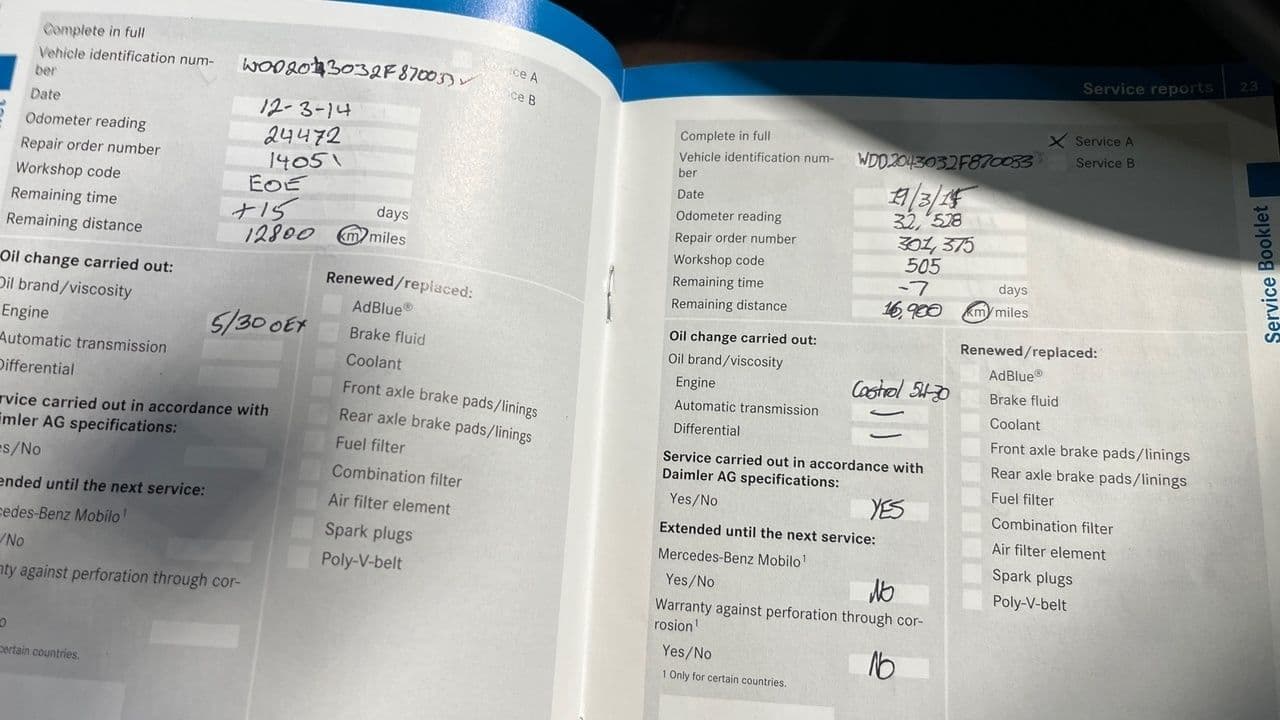 Complete in full
Vehicle identification num-
ber
ce A
ce B
Date 12-3-14
Odometer reading 24472
Repair order number 14051
Workshop code EOE
Remaining time +15 days
Remaining distance 12800 km/miles
Oil change carried out:
Oil brand/viscosity
Engine 5/30 OEX
Automatic transmission
Differential
rvice carried out in accordance with
imler AG specifications:
es/No
ended until the next service:
cedes-Benz Mobilo¹
/No
nty against perforation through cor-
o
certain countries.
Renewed/replaced:
AdBlue®
Brake fluid
Coolant
Front axle brake pads/linings
Rear axle brake pads/linings
Fuel filter
Combination filter
Air filter element
Spark plugs
Poly-V-belt
Service reports 23
Complete in full
X Service A
Service B
Vehicle identification num- WDD2043032F870033
ber
Date
Odometer reading 32,528
Repair order number 301,375
Workshop code 505
Remaining time -7 days
Remaining distance 16,900 km/miles
Oil change carried out:
Oil brand/viscosity
Engine Castrol 5W-30
Automatic transmission –
Differential –
Service carried out in accordance with
Daimler AG specifications:
Yes/No YES
Extended until the next service:
Mercedes-Benz Mobilo¹
Yes/No No
Warranty against perforation through cor-
rosion¹
Yes/No No
1 Only for certain countries.
Renewed/replaced:
AdBlue®
Brake fluid
Coolant
Front axle brake pads/linings
Rear axle brake pads/linings
Fuel filter
Combination filter
Air filter element
Spark plugs
Poly-V-belt
Service Booklet